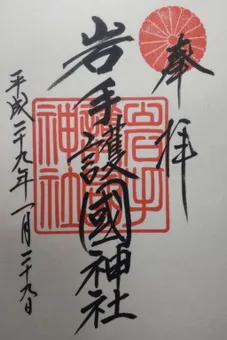 奉拝
岩手護國神社
平成二十九年一月二十九日
岩手護國神社